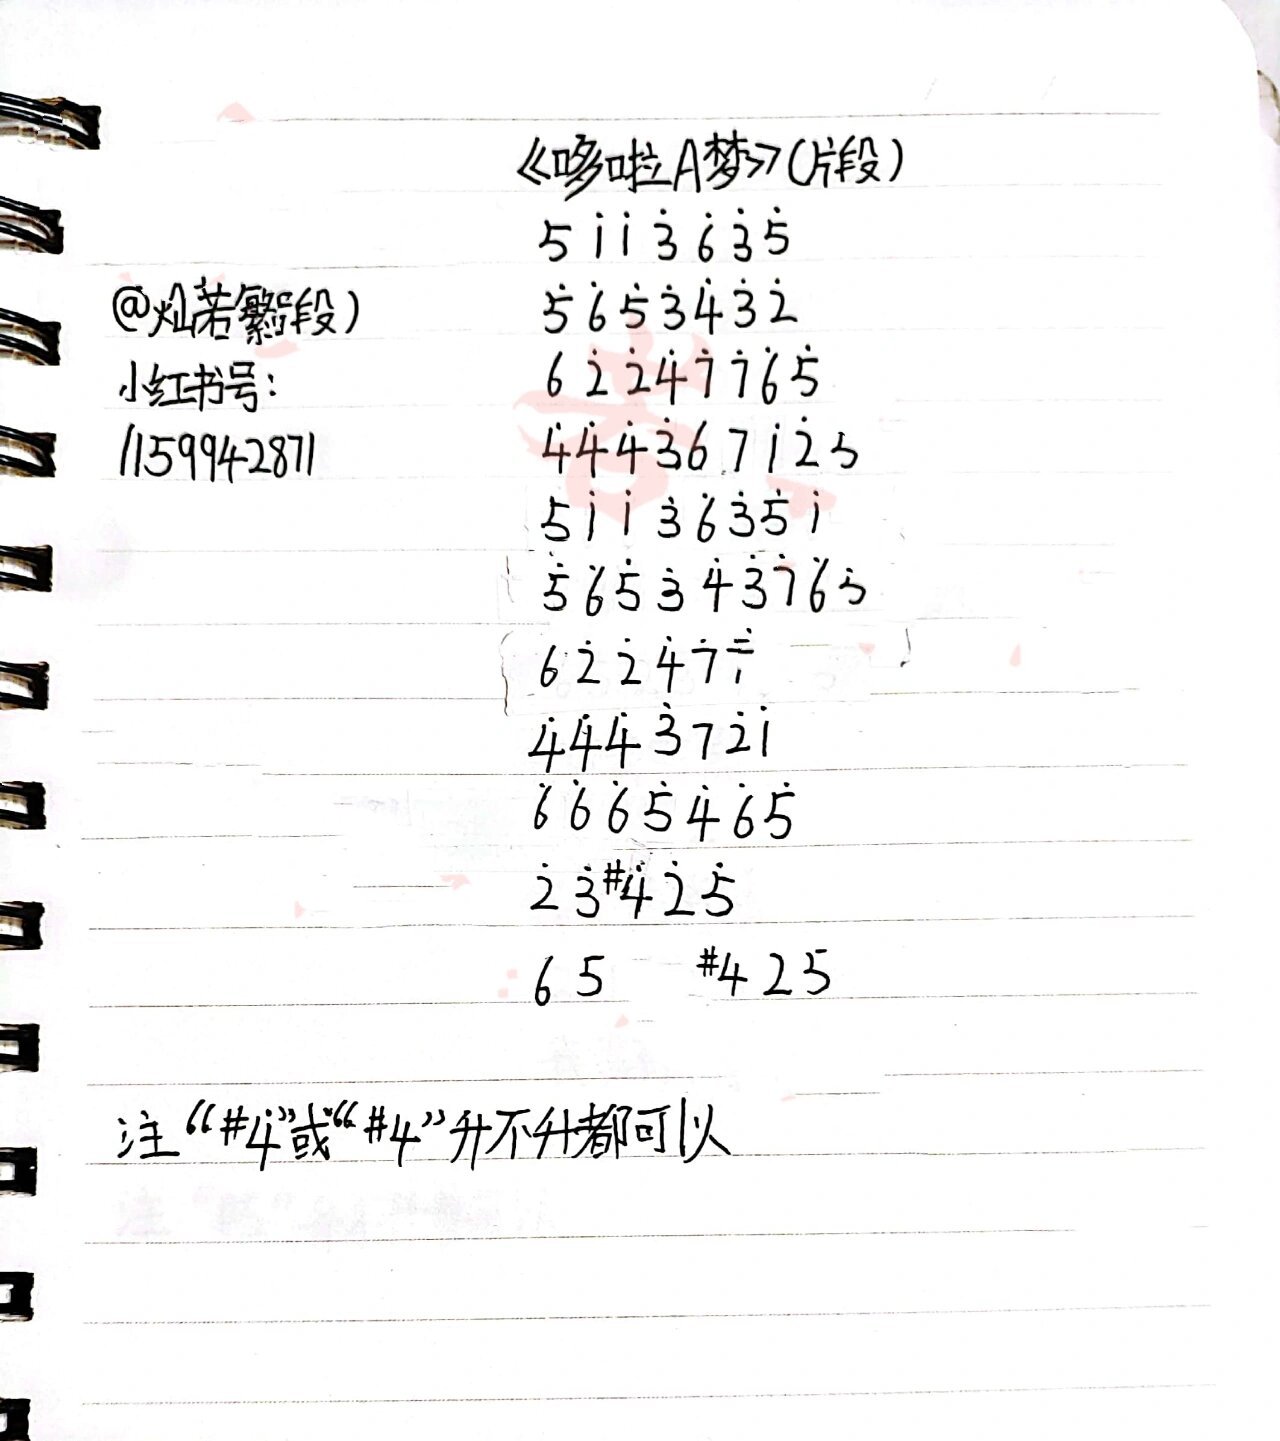 《哆啦A梦》(片段)
5 1̇ 1̇ 3̇ 6̇ 3̇ 5̇
@灿若繁段)
5̇ 6̇ 5̇ 3̇ 4̇ 3̇ 2̇
6 2̇ 2̇ 4̇ 7̇ 7̇ 6̇ 5̇
小红书号:
4̇ 4̇ 4̇ 3̇ 6 7 1̇ 2̇
11159942871
5 1̇ 1̇ 3̇ 6̇ 3̇ 5̇ 1̇
5̇ 6̇ 5̇ 3̇ 4̇ 3̇ 7̇ 6̇
6 2̇ 2̇ 4̇ 7̇
4̇ 4̇ 4̇ 3̇ 7 2̇ 1̇
6̇ 6̇ 6̇ 5̇ 4̇ 6̇ 5̇
2̇ 3̇ #4̇ 2̇ 5̇
6 5 #4 2 5
注“#4̇”或“#4”升不升都可以